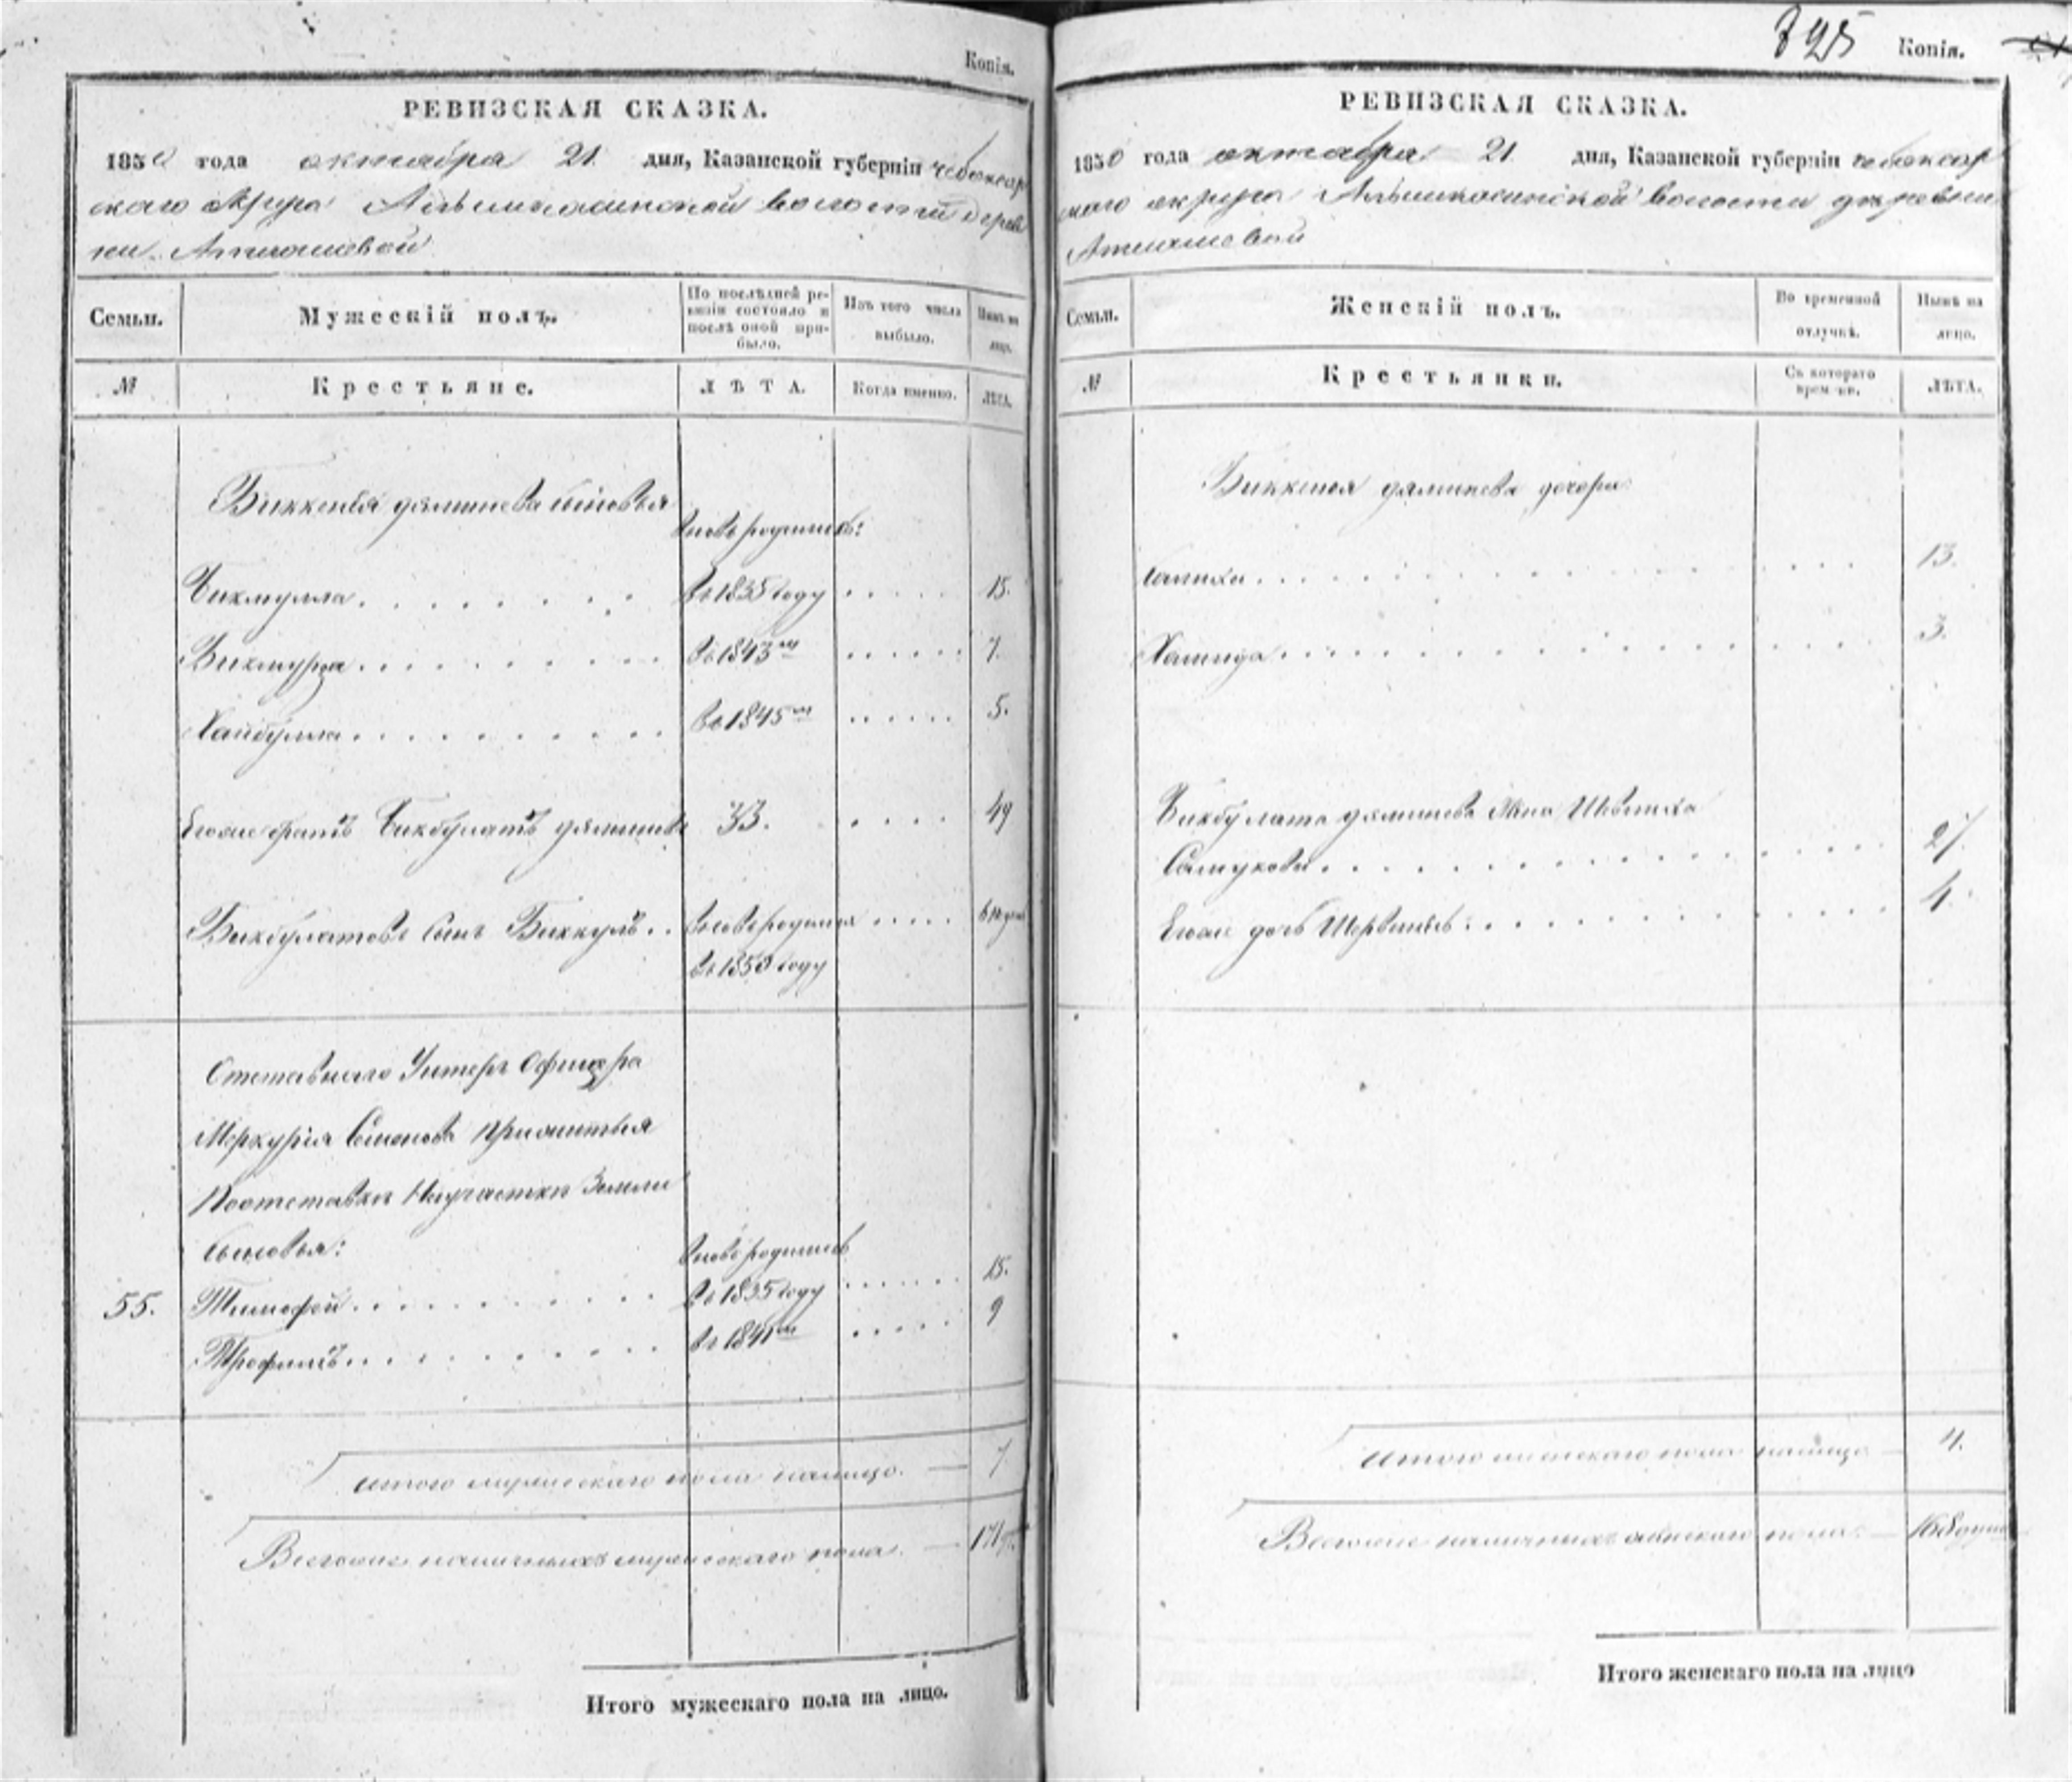 Копія.
РЕВИЗСКАЯ СКАЗКА.
1850 года октября 21 дня, Казанской губерніи чебоксар
скаго округа Альменкасинской волости дерев
ни Атлашевой
Семьи.
Мужескій полъ.
По послѣдней ре-
визіи состояло и
послѣ оной при-
было.
Изъ того числа
выбыло.
Нынѣ на
лицо.
№
Крестьяне.
ЛѢТА.
Когда именно.
ЛѢТА.
Биккенѣя дялишева сыновья
вновь родились:
Бикмулла . . . . . . . . въ 1835 году . . . . . 15.
Бикмурза . . . . . . . . . въ 1843 м . . . . . . 7.
Хайбулла . . . . . . . . . въ 1845 м . . . . . . 5.
Егоже братъ Бикбулатъ дялишевъ 33. . . . . 49
Бикбулатовъ сынъ Биккулъ . . вновь родился . . . . .
въ 1850 году
Отставнаго Унтеръ Офицера
Меркурія Семенова принятыя
По отставкѣ На участки Земли
сыновья:
вновь родились
55. Тимофей . . . . . . . . . въ 1835 году . . . . . . 15.
Трофимъ . . . . . . . . . . въ 1841 м . . . . . 9
Итого мужескаго пола налицо. — 7
Всего наличныхъ мужескаго пола. — 171
Итого мужескаго пола на лицо.
725 Копія.
РЕВИЗСКАЯ СКАЗКА.
1850 года октября 21 дня, Казанской губерніи чебоксар
скаго округа Альменкасинской волости деревни
Атлашевой
Семьи.
Женскій полъ.
Во временной
отлучкѣ.
Нынѣ на
лицо.
№
Крестьянки.
Съ котораго
времени.
ЛѢТА.
Биккенея дялишева дочери:
Салиха . . . . . . . . . . . . . . 13.
Хамида . . . . . . . . . . . . . . 3.
Бикбулата дялишева жена
. . . . . . . . . . . . . . 27.
Егоже дочь . . . . . . . . . . . . 4.
Итого женскаго пола налицо — 4.
Всего наличныхъ женскаго пола. — 168 душъ
Итого женскаго пола на лицо